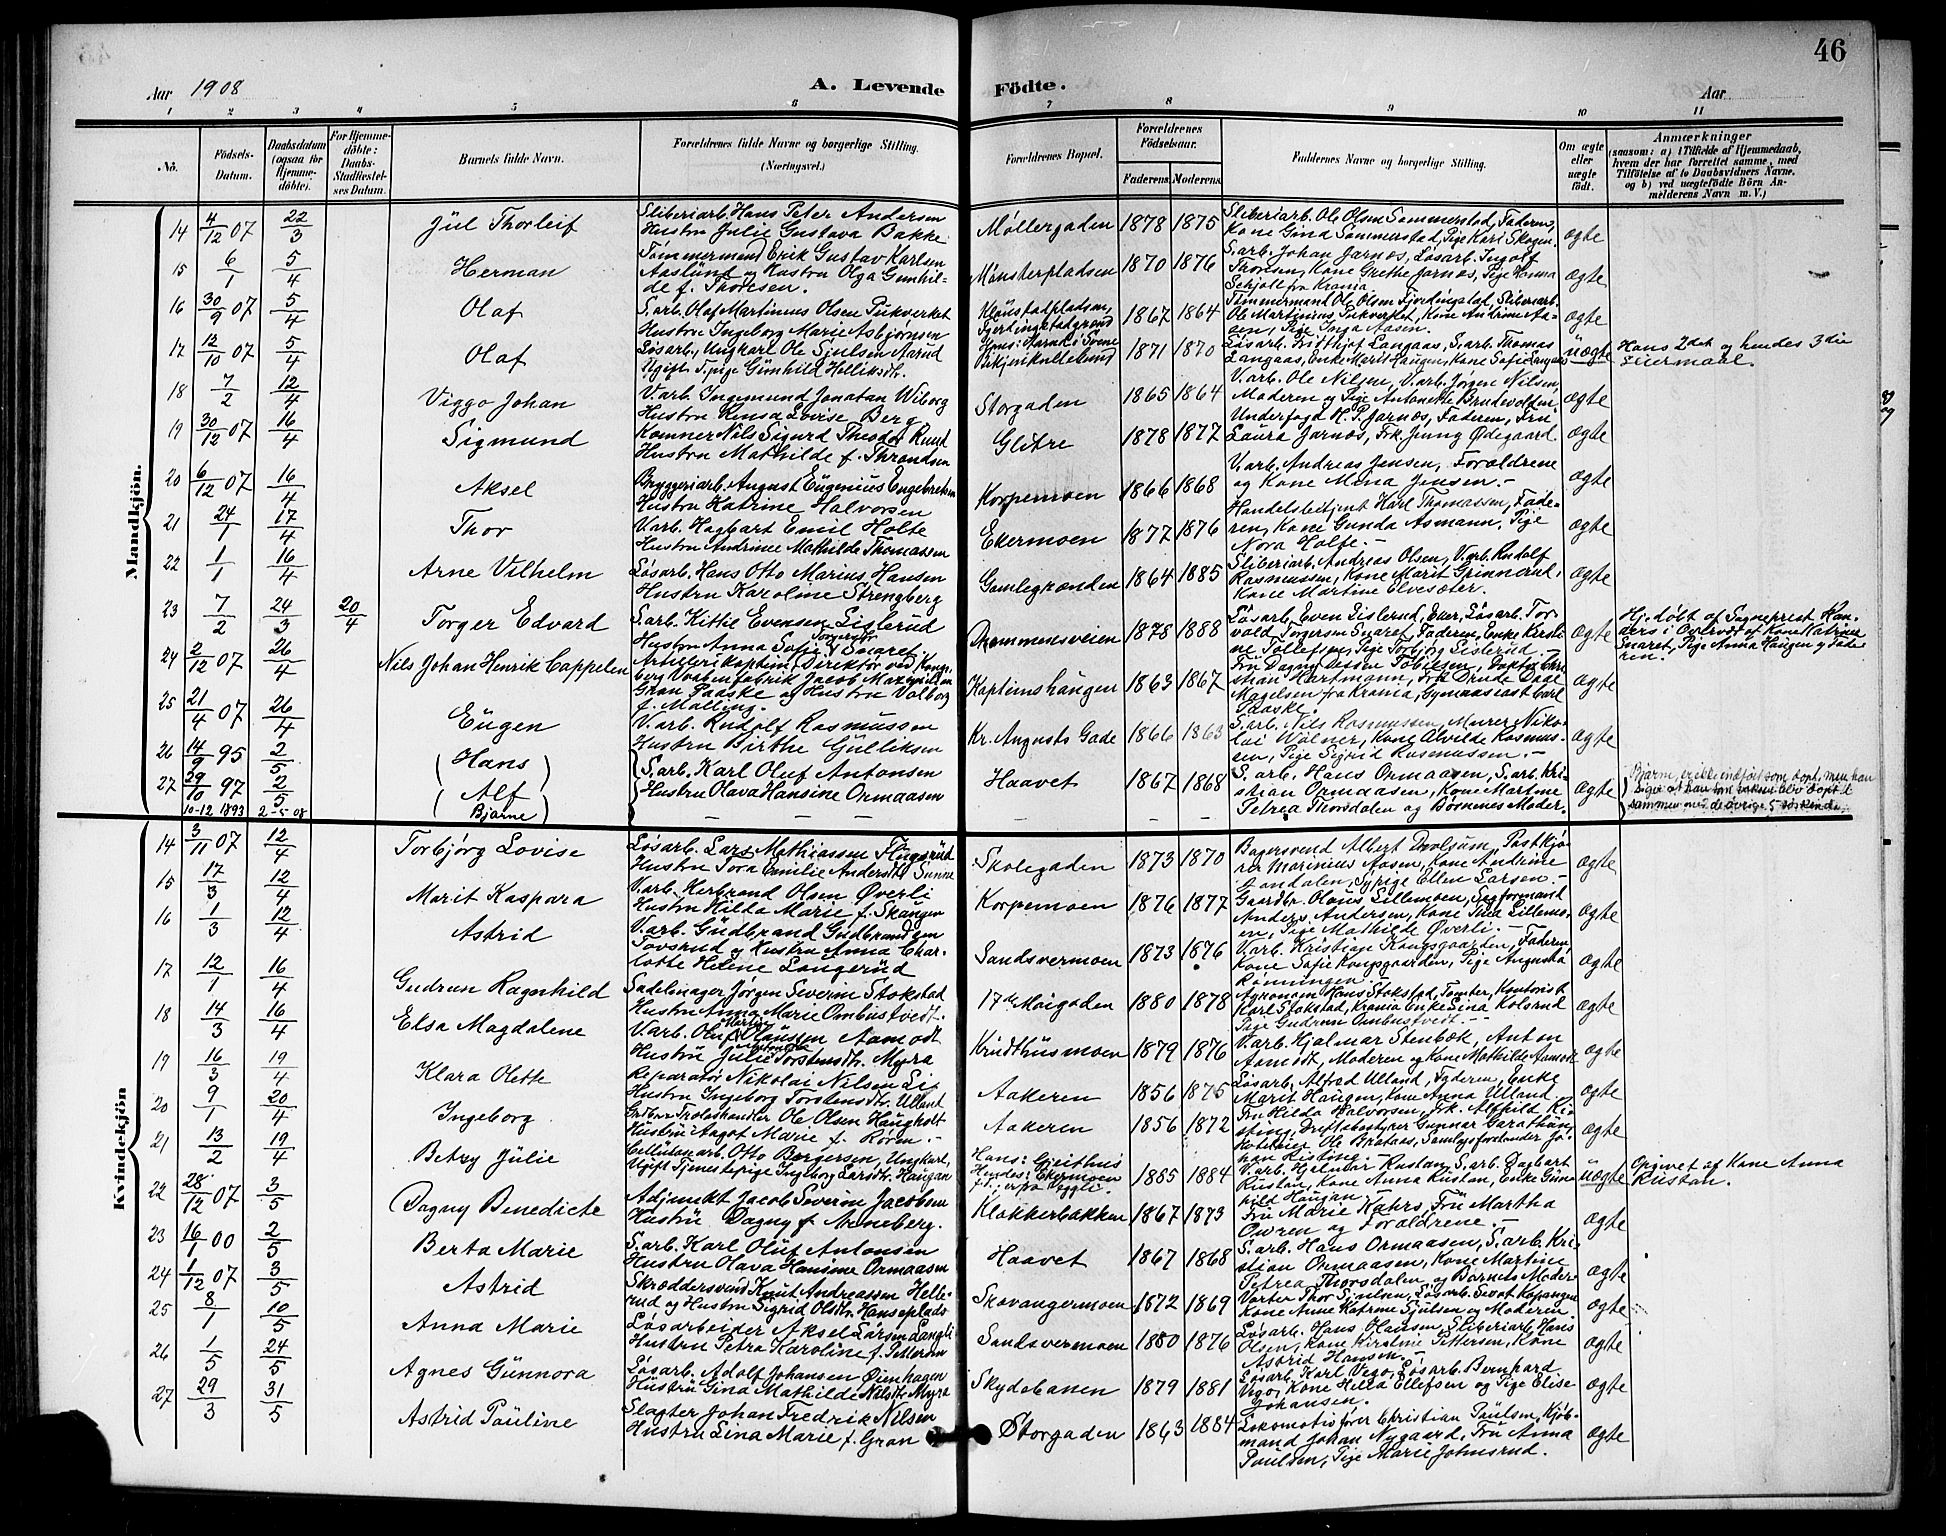 46
Aar 1908 A. Levende Födte. Aar
1 2 3 4 5 6 7 8 9 10 11
No. Födsels-Datum. Daabsdatum (ogsaa for Hjemme-döbte). For Hjemme-döbte: Daabs-Stadfæstel-ses Datum. Barnets fulde Navn. Forældrenes fulde Navne og borgerlige Stilling. (Næringsvei.) Forældrenes Bopæl. Forældrenes Födselsaar. Faderens Moderens Faddernes Navne og borgerlige Stilling. Om ægte eller uægte födt. Anmærkninger (saasom: a) i Tilfælde af Hjemmedaab, hvem der har forrettet samme, med Tilföielse af to Daabsvidners Navne, og b) ved uægtefödte Börn An-melderens Navn m. V.)
Mandkjön.
14 4/12 07 22/3 Jül Thorleif Sliberiarb. Hans Peter Andersen Hustru Julie Gustava Bakke Møllergaden 1878 1875 Sliberiarb. Ole Olsen Sommerstad, Faderen, Kone Gina Sommerstad, Pige Kari Skogen. ægte
15 6/1 5/4 Herman Tømmermand Erik Gustav Karlsen Aaslünd og Hustru Olga Gunhil-de f. Thoresen. Mønsterpladsen 1870 1876 S.arb. Johan Jarnæs, Løsarb. Ingolf Thoresen, Kone Grethe Jarnæs, Pige Hanna Schjøll fra Krania ægte
16 30/9 07 5/4 Olaf S.arb. Olaf Martinius Olsen Pukverket Hustru Ingeborg Marie Asbjørnsen 1867 1864 Tømmermand Ole Olsen Fjerdingstad, Sliberiarb. Ole Martinius Pukverket, Kone Andrine Aa-sen, Pige Inga Aasen. ægte
17 12/10 07 5/4 Olaf Løsarb., Ungkarl Ole Sjulsen Aarud Ugift S.pige Gunhild Helliksdt. Hans: Aarud i Svene 1871 1870 Løsarb. Fritthjof Langaas, S.arb. Thomas Langaas, Enke Marit Haugen, Kone Sofie Langaas üægte Hans 2det og hendes 3die Leiermaal.
18 7/2 12/4 Viggo Johan V.arb. Ingemund Jonatan Wiborg Hustru Rensa Lovise Berg Storgaden 1865 1864 V.arb. Ole Nilsen, V.arb. Jørgen Nilsen, Moderen og Pige Antonette Brudevolden ægte
19 30/12 07 16/4 Sigmund Kemner Nils Sigurd Theodor Ruud Hustru Mathilde f. Throndsen Glitre 1878 1877 Underfogd K. P. Jarnæs, Faderen, Fru Laura Jarnæs, Frk. Jenny Ødegaard. ægte
20 6/12 07 16/4 Aksel Bryggeriarb. August Eugenius Engebretsen Hustru Katrine Halvorsen Korpemoen 1866 1868 V.arb. Andreas Jensen, Forældrene og Kone Mena Jensen. – ægte
21 24/1 17/4 Thor V.arb. Hagbart Emil Holte Hustru Andrinee Mathilde Thomassen Ekermoen 1877 1876 Handelsbetjent Karl Thomassen, Fade-ren, Kone Gunda Asmann, Pige Nora Holte. – ægte
22 1/1 16/4 Arne Vilhelm Løsarb. Hans Otto Marius Hansen Hustru Karoline Strengberg Gamlegrænden 1864 1885 Sliberiarb. Andreas Olsen, V.arb. Rudolf Rasmussen, Kone Marit Grinnerud, Kone Martine Elvesæter. ægte
23 7/2 24/3 20/4 Torger Edvard S.arb. Kittil Evensen Lislerud Hustru Anna Sofie Torgersdt Snaret Drammensveien 1878 1888 Løsarb. Even Lislerud, Eker, Løsarb. Tor-vald Torgersen Snaret, Faderen, Enke Kersti-ne Tollefsen, Pige Torbjør Lislerud. – ægte Hj. døbt af Sogneprest Kan-ders i Overvær af Kone Katrine Snaret, Pige Anna Haugen og Fade-ren.
24 2/12 07 26/4 Nils Johan Henrik Cappelen Artillerikaptein, Direktør ved Kongs-berg Vaabenfabrik Jacob Maximilian Gran Paaske og Hustru Valborg f. Malling. Kapteinshaugen 1863 1867 Fru Dagny Dessen Tobiesen, Doktor Chri-stian Hartmann, Frk. Drude Daae Magelsen fra Krania, Gymnasiast Carl Paaske. ægte
25 21/4 07 26/4 Eügen V.arb. Rudolf Rasmussen Hustru Birthe Gülliksen Kr. Augusts Gade 1866 1863 S.arb. Nils Rasmussen, Murer Niko-lai Wølner, Kone Alvilde Rasmus-sen, Pige Sigrid Rasmussen. – ægte
26 14/9 95 2/5 Hans
27 29/10 97 2/5 Alf S.arb. Karl Oluf Antonsen Hustru Olava Hansine Ormaasen Haavet 1867 1868 S.arb. Hans Ormaasen, S.arb. Kri-stian Ormaasen, Kone Martine Petrea Thorsdalen og Børnenes Moder. ægte Bjarne, er ikke indført som døpt, men han siger at han som voksen blev døpt sammen med de øvrige 5 søskende.
10-12 1893 2-5-08 Bjarne – – – – –
Kvindekjön
14 3/11 07 12/4 Torbjørg Lovise Løsarb. Lars Mathiassen Flügsrüd Hustru Tora Emilie Andersdt. Sunne Skolegaden 1873 1870 Bagersvend Albert Dvolsum, Postkjø-rer Marinius Aasen, Kone Andrine Gondalen, Sypige Ellen Larsen. – ægte
15 17/3 12/4 Marit Kaspara V.arb. Herbrand Olsen Øverli Hustru Hilda Marie f. Skaugen Korpemoen 1876 1877 Gaardbr. Olaus Lillemoen, Sagformand Anders Andersen, Kone Thea Lillemo-en, Pige Mathilde Øverli. – ægte
16 1/3 12/4 Astrid V.arb. Gudbrand Gudbrandsen Tovsrud og Hustru Anna Char-lotte Helene Langerüd Sandsvermoen 1873 1876 V.arb. Kristian Kongsgaarden, Faderen, Kone Sofie Kongsgaarden, Pige Augusta Rønningen. – ægte
17 12/1 16/4 Gudrun Ragnhild Sadelmager Jørgen Severin Stokstad Hustru Anna Marie Ombustvedt. 17de Maigaden 1880 1878 Agronom Hans Stokstad, Tomter, Kontorist Karl Stokstad, Krania, Enke Lina Kolsrud Pige Gudrun Ombustvedt. – ægte
18 14/3 16/4 Elsa Magdalene V.arb. Oluf Martin Hanssen Aamodt Hustrü Jülie Antonette Torstensdtr. Myra Krudthüsmoen 1879 1876 V.arb. Hjalmar Stenbæk, Anton Aamodt, Moderen og Kone Mathilde Aamodt ægte
19 16/3 19/4 Klara Olette Reparatør Nikolai Nilsen Lie Hustru Ingeborg Torstensdtr. Ulland Aakeren 1856 1875 Løsarb. Alfred Ulland, Faderen, Enke Marit Haugen, Kone Anna Ulland ægte
20 9/1 20/4 Ingeborg Grdbr. og Trælasthandler Ole Olsen Haugholt Hüstrü Aagot Marie f. Røren. – Aakeren 1856 1872 Fru Hilda Halvorsen, Frk. Alfhild Ki-sting, Driftsbestyrer Gunnar Gerathsen, ægte
21 13/2 19/4 Betzy Jülie Celluloxarb. Otto Borgersen, Ungkarl, Ugift Tjenestepige Ingeborg Larsdtr. Haugan Hans: Gjeithus Hendes: Ekermoen 1885 1884 V.arb. Hjalmar Rustan, S.arb. Dagbart Rustan, Kone Anna Rustan, Enke Gun-hild Haugan. üægte Opgivet af Kone Anna Rustan.
22 28/12 07 3/5 Dagny Benedicte Adjunkt Jacob Severin Jacobsen Hustrü Dagny f. Anneberg. Klokkerbakken 1867 1873 Frü Marie Kahrs, Frü Martha Owren og Forældrene. – ægte
23 16/1 00 2/5 Berta Marie S.arb. Karl Olüf Antonsen Hustru Olava Hansine Ormaasen Haavet 1867 1868 S.arb. Hans Ormaasen, S.arb. Kri-stian Ormaasen, Kone Martine Petrea Thorsdalen, og Barnets Moder ægte
24 1/12 07 3/5 Astrid Skræddersvend Knut Andreassen Helle-rud og Hustru Sigrid Olsdtr. Hanseplads Skavangermoen 1872 1869 Vægter Thor Sjulsen, Løsarb. Sivat Kopangen Kone Anne Katrine Sjulsen og Moderen ægte
25 8/1 10/5 Anna Marie Løsarbeider Aksel Larsen Langeli Hustru Petra Karoline f. Pettersen Sandsvermoen 1880 1876 Løsarb. Hans Hansen, Sliberiarb. Hans Olsen, Kone Kirstine Pettersen, Kone Astrid Hansen. – ægte
26 1/5 24/5 Agnes Günnora Løsarb. Adolf Johansen Øienhagen Hüstrü Gina Mathilde Nilsdt. Myra Skydebanen 1879 1881 Løsarb. Karl Vego, Løsarb. Bernhard Vego, Kone Helia Ellefsen og Pige Elise Johansen. ægte
27 29/3 31/5 Astrid Paüline Slagter Johan Fredrik Nilsen Hustru Lina Marie f. Gran Storgaden 1863 1884 Lokomotivfører Christian Paülsen, Kjøb-mand Johan Nygaard, Frü Anna Paulsen, Pige Marie Johnsrud. ægte